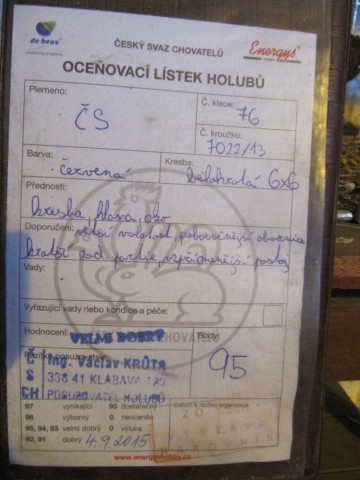 de heus
ČESKÝ SVAZ CHOVATELŮ
Energys
OCEŇOVACÍ LÍSTEK HOLUBŮ
Plemeno:
ČS
Č. klece: 76
Č. kroužku: 7022/13
Barva: červená
Kresba: bělohrotá 6x6
Přednosti:
kresba, hlava, oko
Doporučení: větší volatost,
kratší zad partie vzpřímenější postoj
Vady:
Vyřazující vady nebo kondice a péče:
Hodnocení: VELMI DOBRÝ
Body: 95
Razítko posuzovatele:
Č Ing. Václav KRŮTA
S 338 41 KLABAVA
CH POSUZOVATEL HOLUBŮ
97 vynikající 90 dostatečný
96 výborný 0 neoceněn
95, 94, 93 velmi dobrý 0 výluka
92, 91 dobrý 4.9.2015
Datum a razítko organizace
VÝSTAVA
www.energyshobby.cz